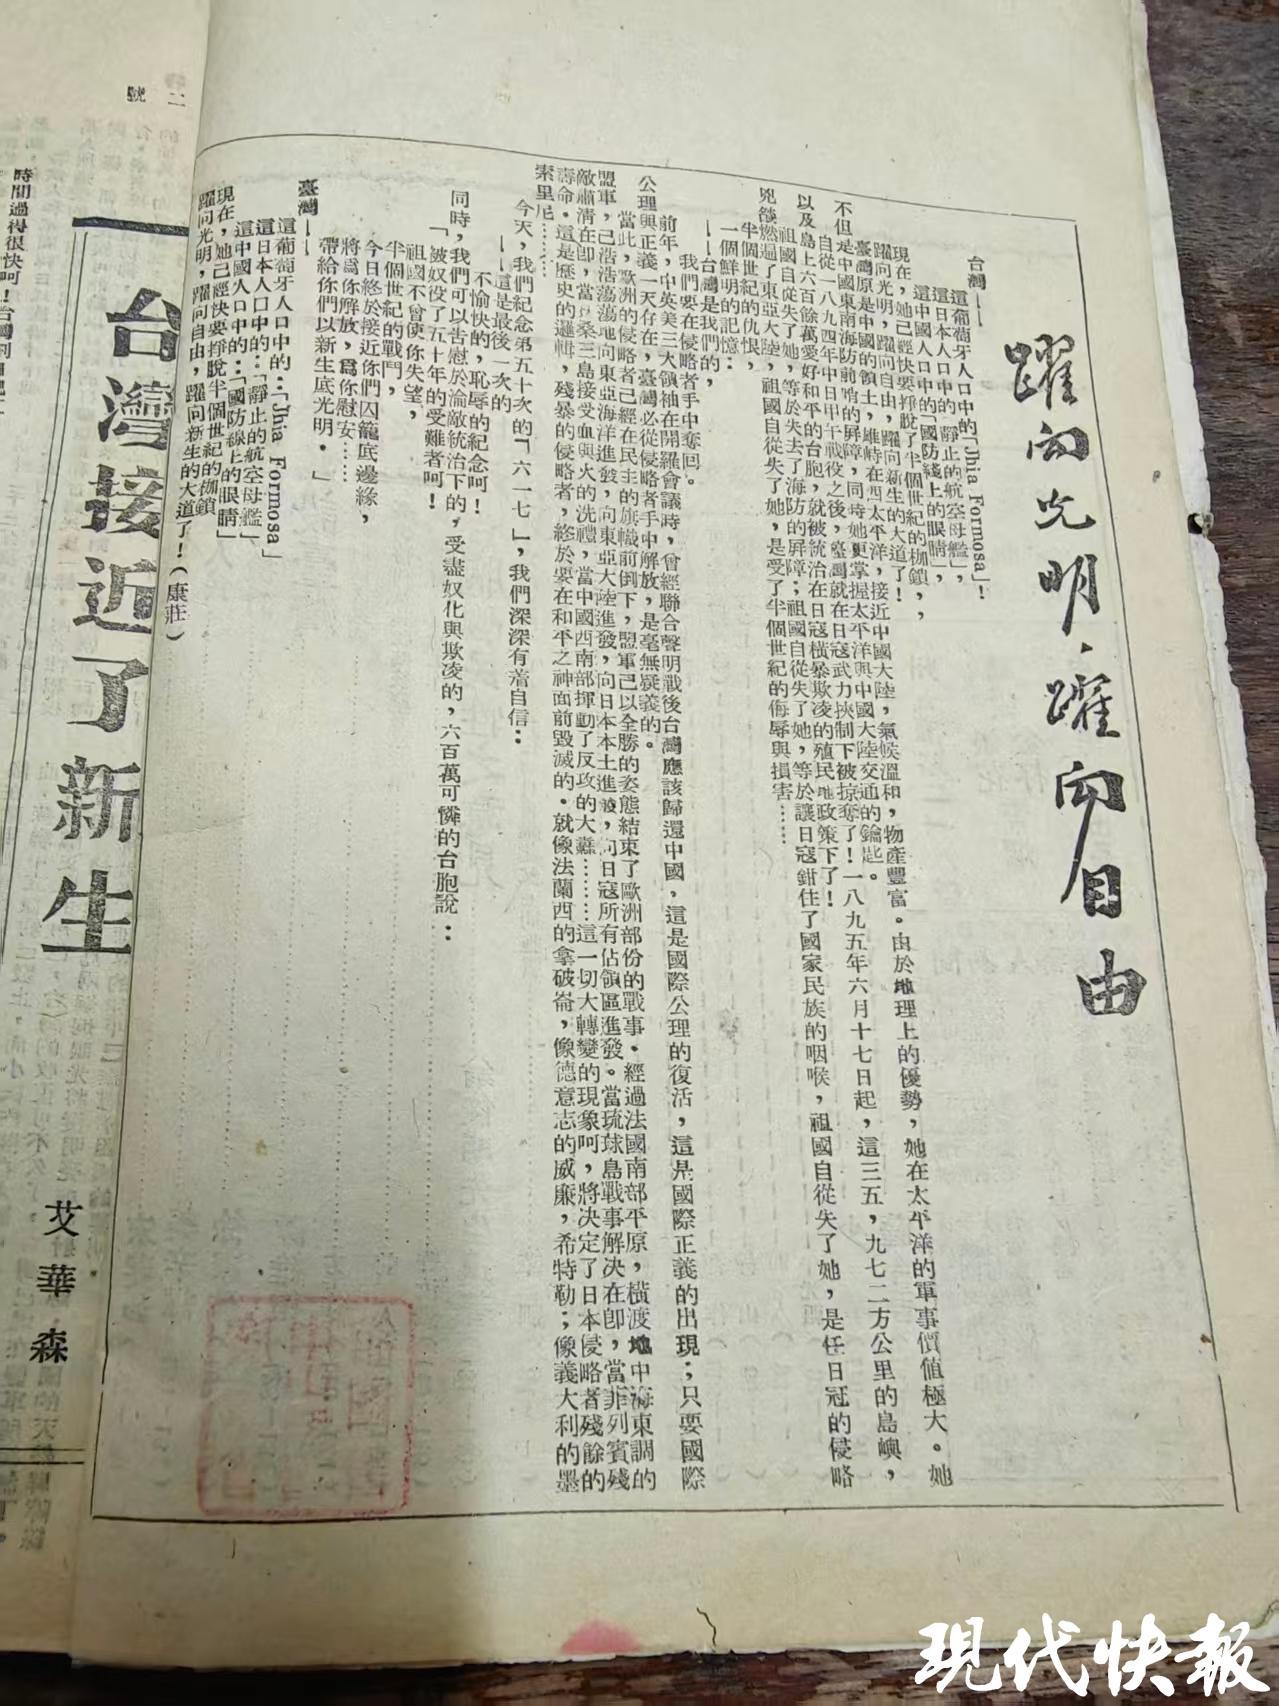 躍向光明，躍向自由
台灣——
這葡萄牙人口中的「Jhia Formosa」！
這日本人口中的「靜止的航空母艦」，
這中國人口中的「國防綫上的眼睛」，
現在，她已經快要掙脫了半個世紀的枷鎖，
躍向光明，躍向自由，躍向新生的大道了！
臺灣原是中國的領土，雄峙在西太平洋，接近中國大陸，氣候溫和，物產豐富。由於地理上的優勢，她在太平洋的軍事價值極大。她
不但是中國東南海防前哨的屏障，同時她更掌握太平洋與中國大陸交通的鑰匙。
自從一八九四年中日甲午戰役之後，臺灣就在日寇武力挾制下被掠奪了！一八九五年六月十七日起，這三五，九七二方公里的島嶼，
以及島上六百餘萬愛好和平的台胞，就被統治在日寇橫暴欺凌的殖民地政策下了！
祖國自從失了她，等於失去了海防的屏障；祖國自從失了她，等於讓日寇鉗住了國家民族的咽喉，祖國自從失了她，是任日冦的侵略
兇燄燃遍了東亞大陸，祖國自從失了她，是受了半個世紀的侮辱與損害……
半個世紀的仇恨，
一個鮮明的記憶：
——台灣是我們的，
我們要在侵略者手中奪回。
前年，中英美三大領袖在開羅會議時，曾經聯合聲明戰後台灣應該歸還中國，這是國際公理的復活，這是國際正義的出現；只要國際
公理與正義一天存在，臺灣必從侵略者手中解放，是毫無疑義的。
當此，歐洲的侵略者已經在民主的旗幟前倒下，盟軍已以全勝的姿態結束了歐洲部份的戰事．經過法國南部平原，橫渡地中海東調的
盟軍，已浩浩蕩蕩地向東亞海洋進發，向東亞大陸進發，向日本本土進發，向日寇所有佔領區進發。當琉球島戰事解决在卽，當菲列賓殘
敵肅清在卽，當扶桑三島接受血與火的洗禮，當中國西南部揮動了反攻的大纛……這一切大轉變的現象呵，將決定了日本侵略者殘餘的
壽命．這是歷史的邏輯，殘暴的侵略者，終於要在和平之神面前毀滅的．就像法蘭西的拿破崙，像德意志的威廉，希特勒；像義大利的墨
索里尼……
今天，我們紀念第五十次的「六一七」，我們深深有着自信：
——這是最後一次的
不愉快的，恥辱的紀念呵！
同時，我們可以告慰於淪敵統治下的，受盡奴化與欺凌的，六百萬可憐的台胞說：
「被奴役了五十年的受難者呵！
祖國不曾使你失望，
半個世紀的戰鬥，
今日終於接近你們囚籠底邊緣，
將爲你解放，爲你慰安……
帶給你們以新生底光明．」
臺灣——
這葡萄牙人口中的：「Jhia Formosa」
這日本人口中的：「靜止的航空母艦」
這中國人口中的：「國防線上的眼睛」
現在，她已經快要掙脫半個世紀的枷鎖
躍向光明，躍向自由，躍向新生的大道了！（康莊）
二號
台灣接近了新生
艾華森
時間過得很快呵！
現代快報